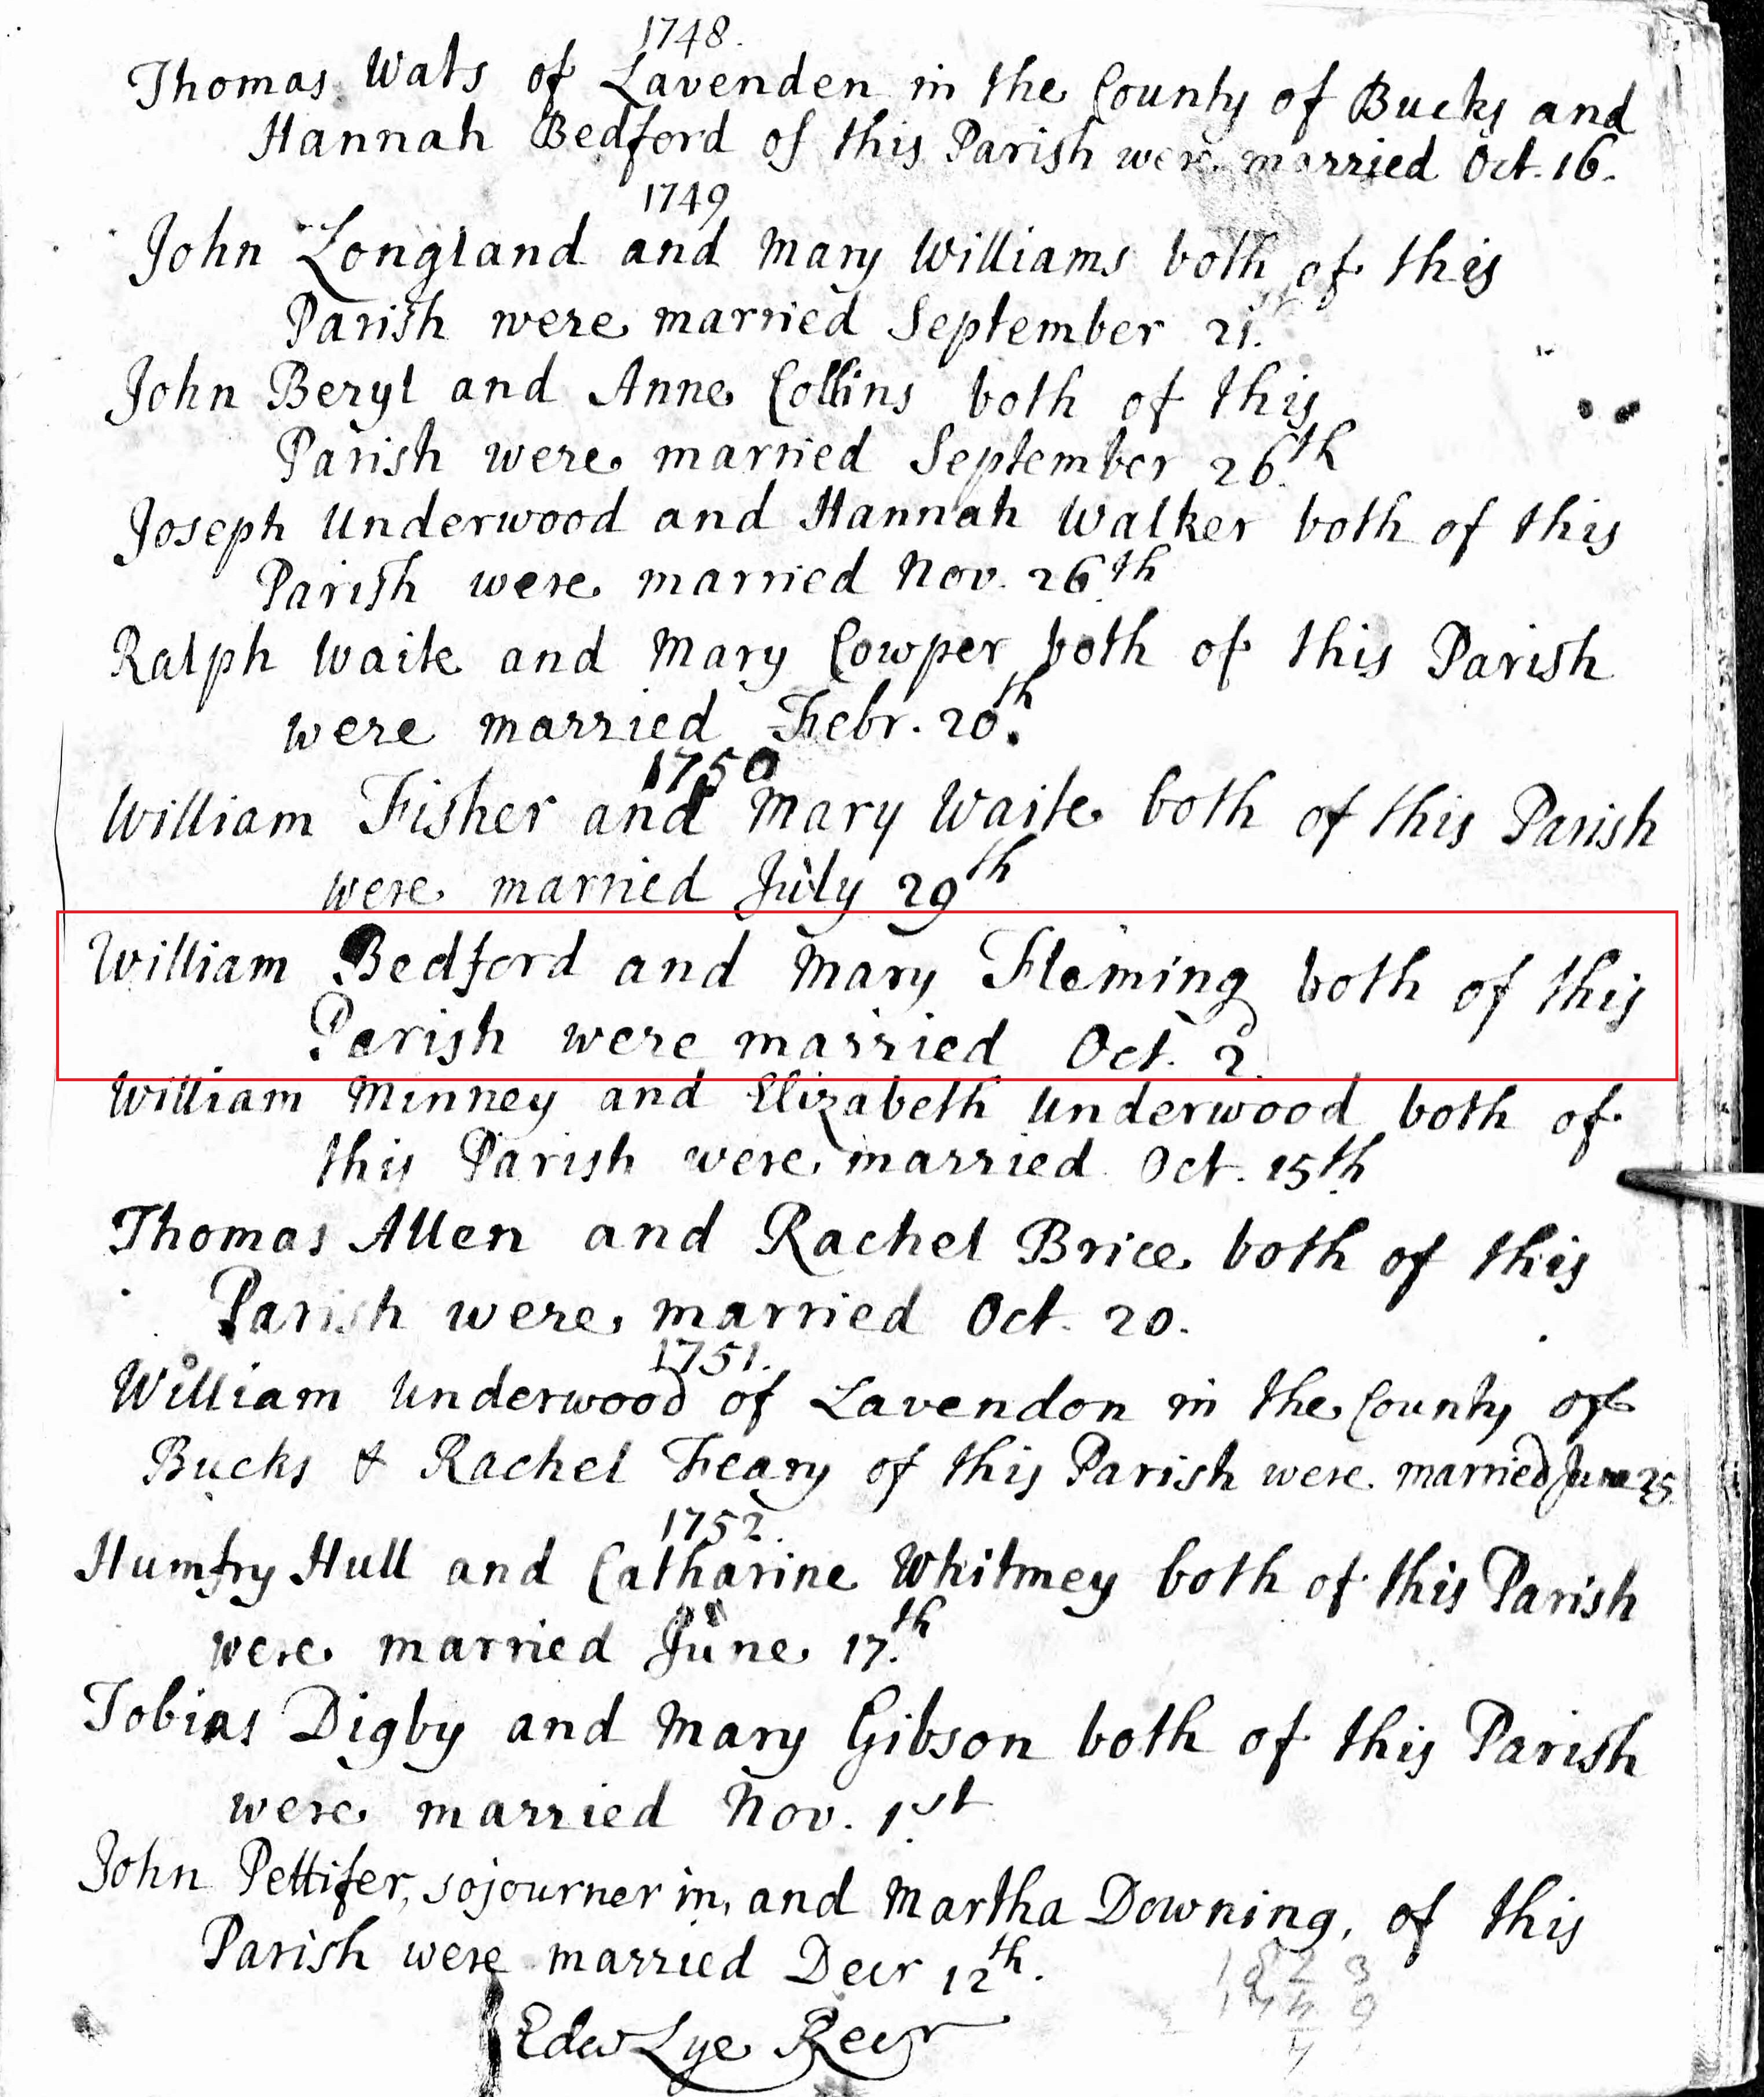 1748.
Thomas Wats of Lavenden in the County of Bucks and
Hannah Bedford of this Parish were married Oct. 16.
1749
John Longland and Mary Williams both of this
Parish were married September 21.
John Beryl and Anne Collins both of this
Parish were married September 26th
Joseph Underwood and Hannah Walker both of this
Parish were married Nov. 26th
Ralph Waite and Mary Cowper both of this Parish
were married Febr. 20th.
1750
William Fisher and Mary Waite both of this Parish
were married July 29th
William Bedford and Mary Fleming both of this
Parish were married Oct. 2d.
William Minney and Elizabeth Underwood both of
this Parish were married Oct. 15th
Thomas Allen and Rachel Brice both of this
Parish were married Oct. 20.
1751.
William Underwood of Lavendon in the County of
Bucks & Rachel Feary of this Parish were married June 25
1752.
Humfry Hull and Catharine Whitmey both of this Parish
were married June 17th.
Tobias Digby and Mary Gibson both of this Parish
were married Nov. 1st
John Pettifer, sojourner in, and Martha Downing, of this
Parish were married Decr 12th.
Edw Lye Recr